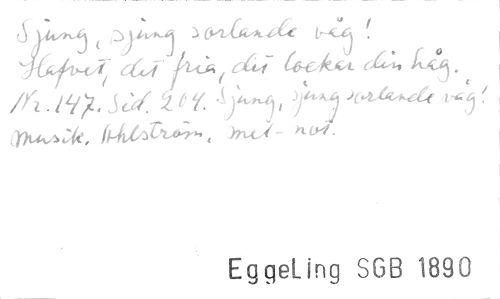 Sjung, sjung sorlande våg!
Hafvet, det fria, det lockar din håg.
Nr. 147. Sid. 204. Sjung, sjung sorlande våg!
Musik. Ahlström, mel-not.
EggeLing SGB 1890